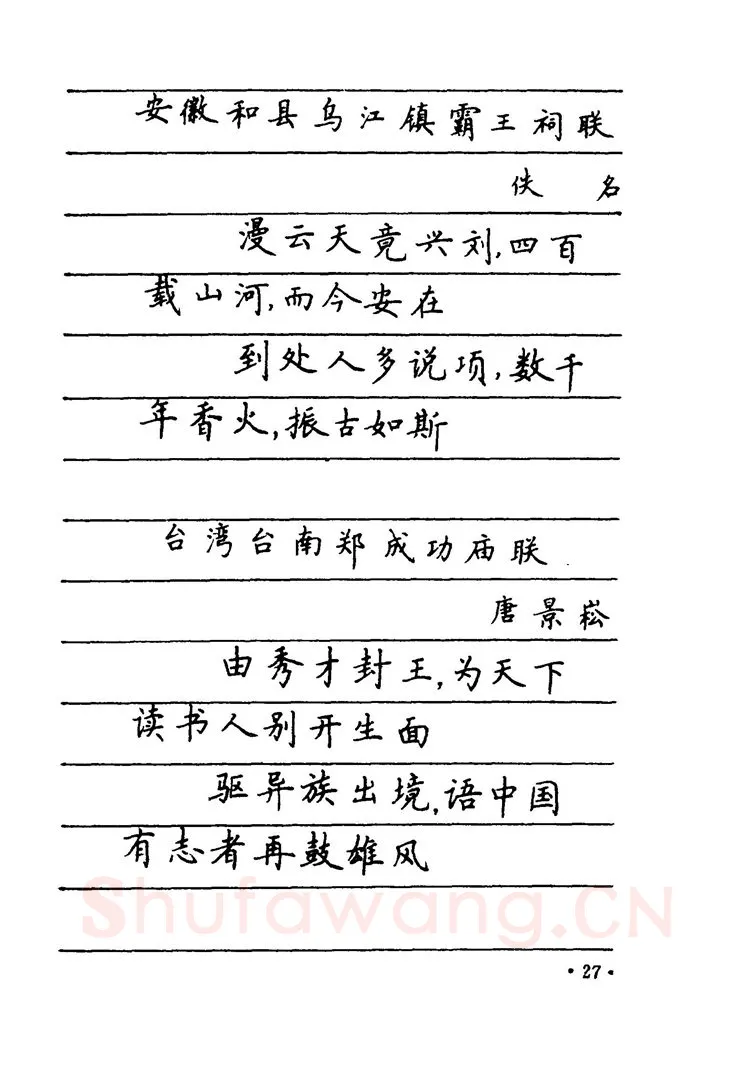 安徽和县乌江镇霸王祠联
佚 名
漫云天竟兴刘,四百
载山河,而今安在
到处人多说项,数千
年香火,振古如斯
台湾台南郑成功庙联
唐景崧
由秀才封王,为天下
读书人别开生面
驱异族出境,语中国
有志者再鼓雄风
Shufawang.CN
·27·